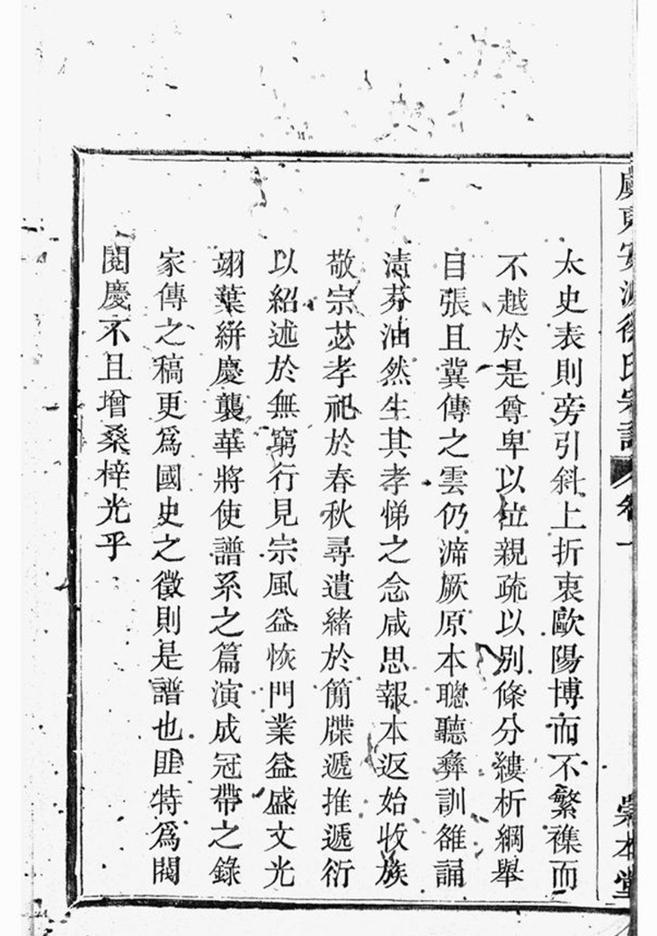 東安
徐氏宗譜
卷一
本堂
太史表則旁引斜上折衷歐陽博而不繁襍而
不越於是尊卑以位親疏以別條分縷析綱舉
目張且冀傳之雲仍渧厥原本聰聽彝訓雒誦
清芬油然生其孝悌之念咸思報本返始收族
敬宗苾孝祀於春秋尋遺緒於簡牒遞推遞衍
以紹述於無窮行見宗風益恢門業益盛文光
翊葉絣慶襲華將使譜系之篇演成冠帶之錄
家傳之稿更為國史之徵則是譜也匪特為閥
閱慶不且增桑梓光乎